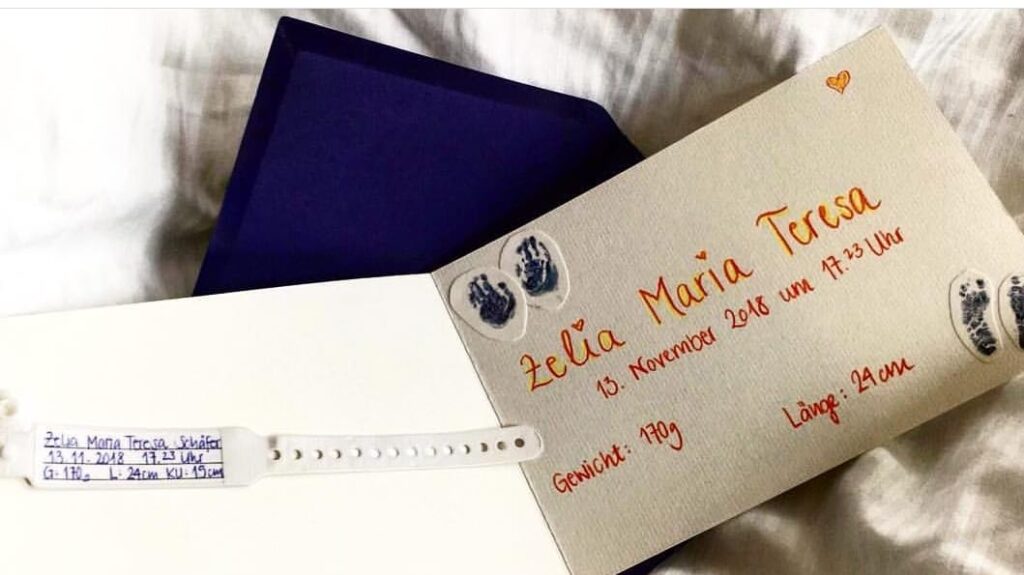 Zelia Maria Teresa
13. November 2018 um 17.23 Uhr
Gewicht: 170g
Länge: 24cm
Zelia Maria Teresa Schäfer
13.11.2018 17.23 Uhr
G: 170g L: 24cm KU: 15cm